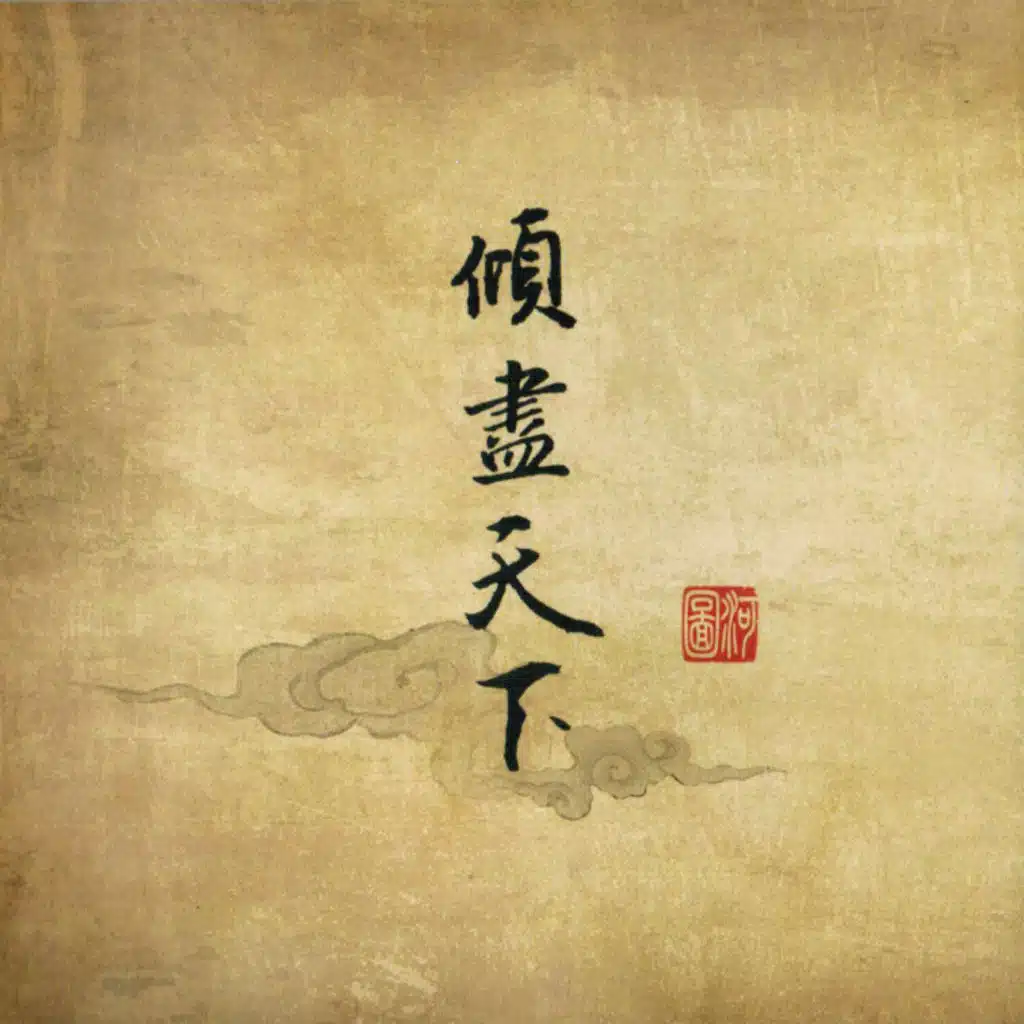 傾盡天下
河圖